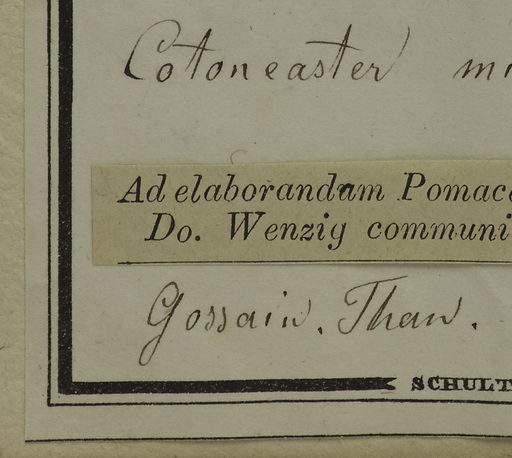 Cotoneaster mi
Ad elaborandam Pomace
Do. Wenzig communi
Gossain. Than.
SCHULT